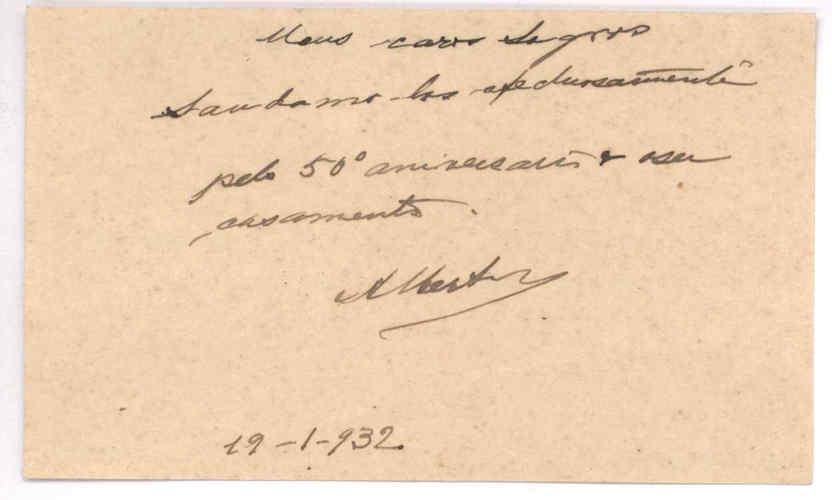 Meus caros Sogros
Saudamo-los afectuosamente
pelo 50º aniversario de seu
casamento.
Alberto
19-1-932.